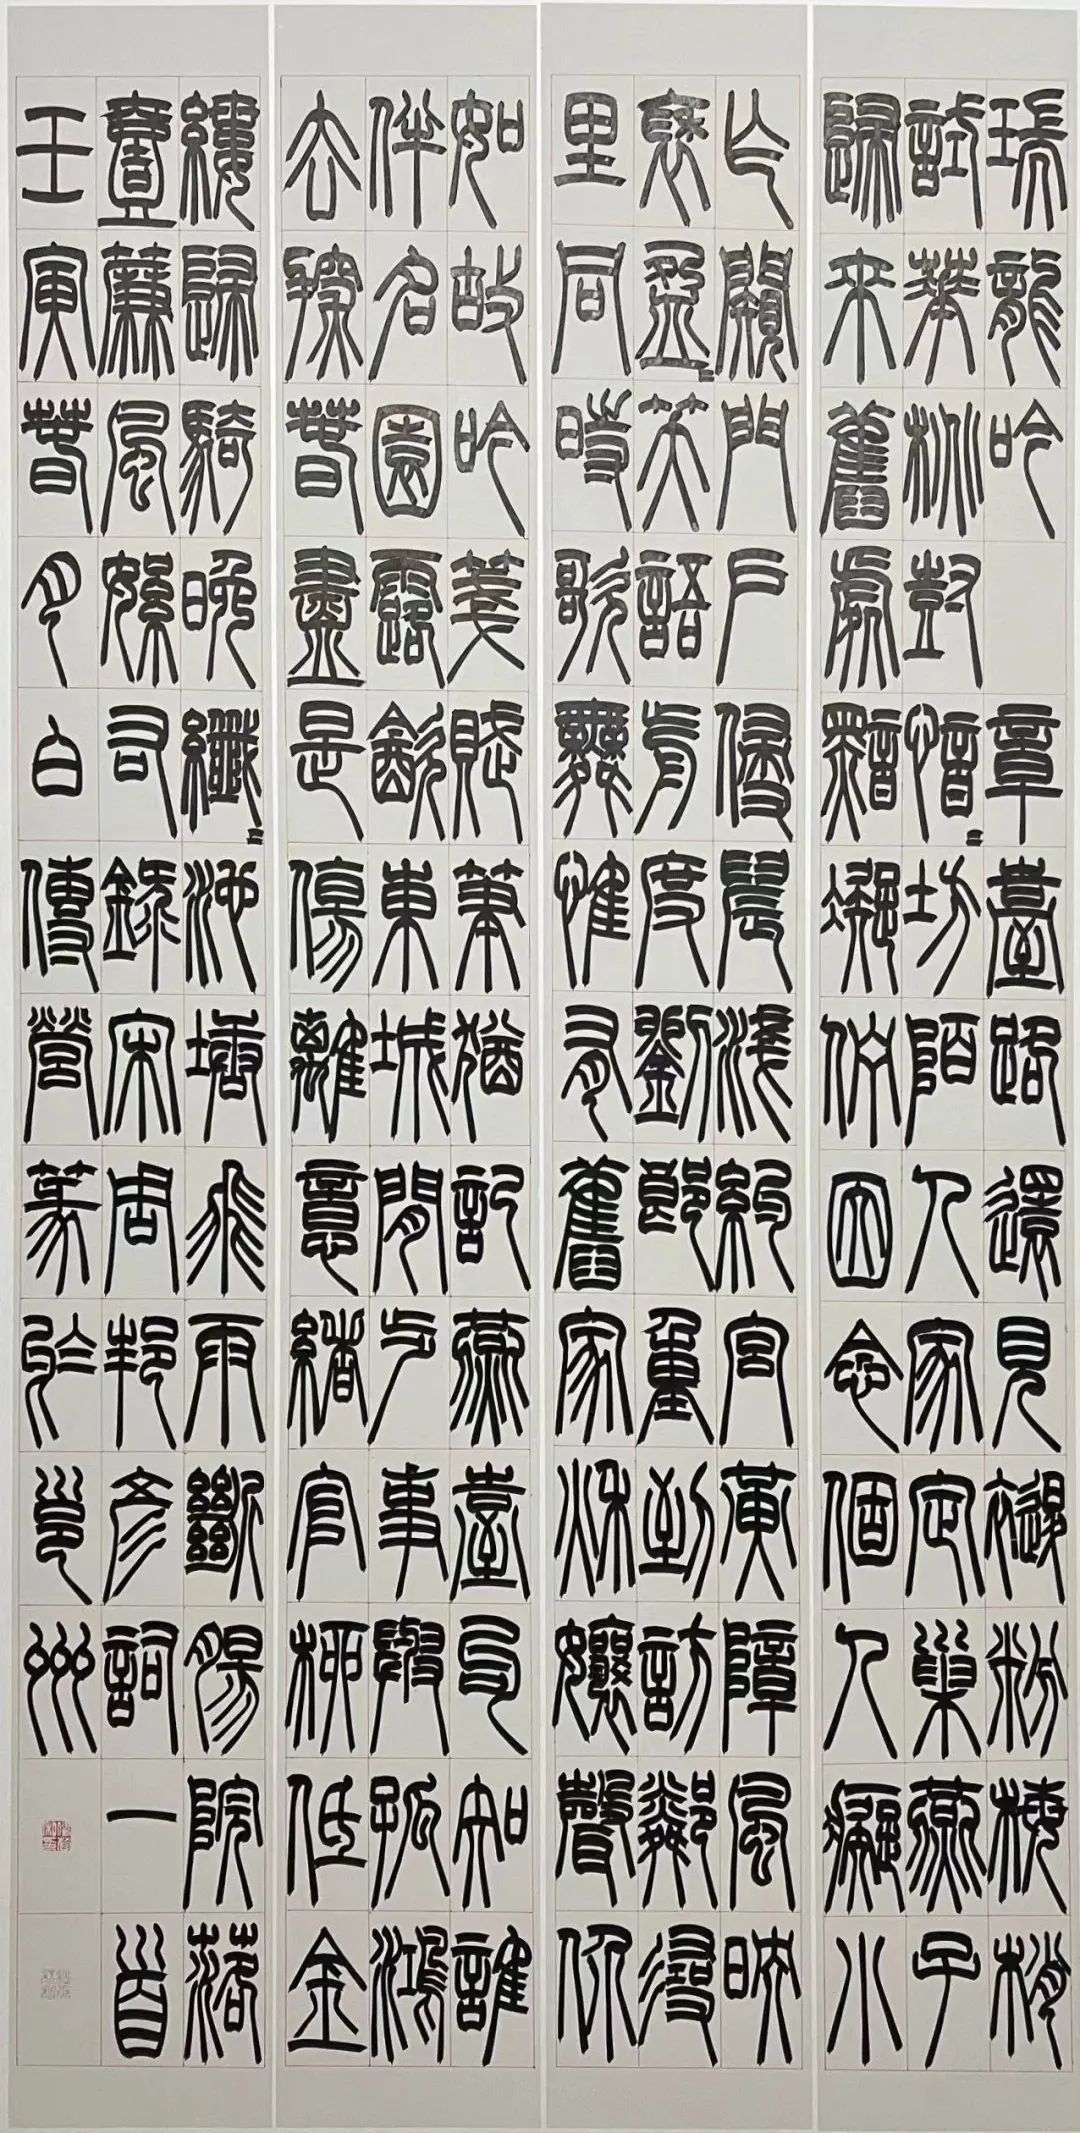 瑞龍吟 章臺路還見褪粉梅梢
試華桃樹愔=坊陌人家定巢燕子
歸來舊處黯凝佇因念個人癡小
乍窺門戶侵晨淺約宮黃障風映
褎盈=笑語前度劉郎重到訪鄰尋
里同時歌舞惟有舊家秋娘聲价
如故吟箋賦筆猶記燕臺句知誰
伴名園露飲東城閒步事與孤鴻
去探春盡是傷離意緒官柳低金
縷歸騎晚纖=池塘飛雨斷腸院落
壹簾風絮右錄宋周邦彥詞一首
壬寅春月白傳營篆於邕州